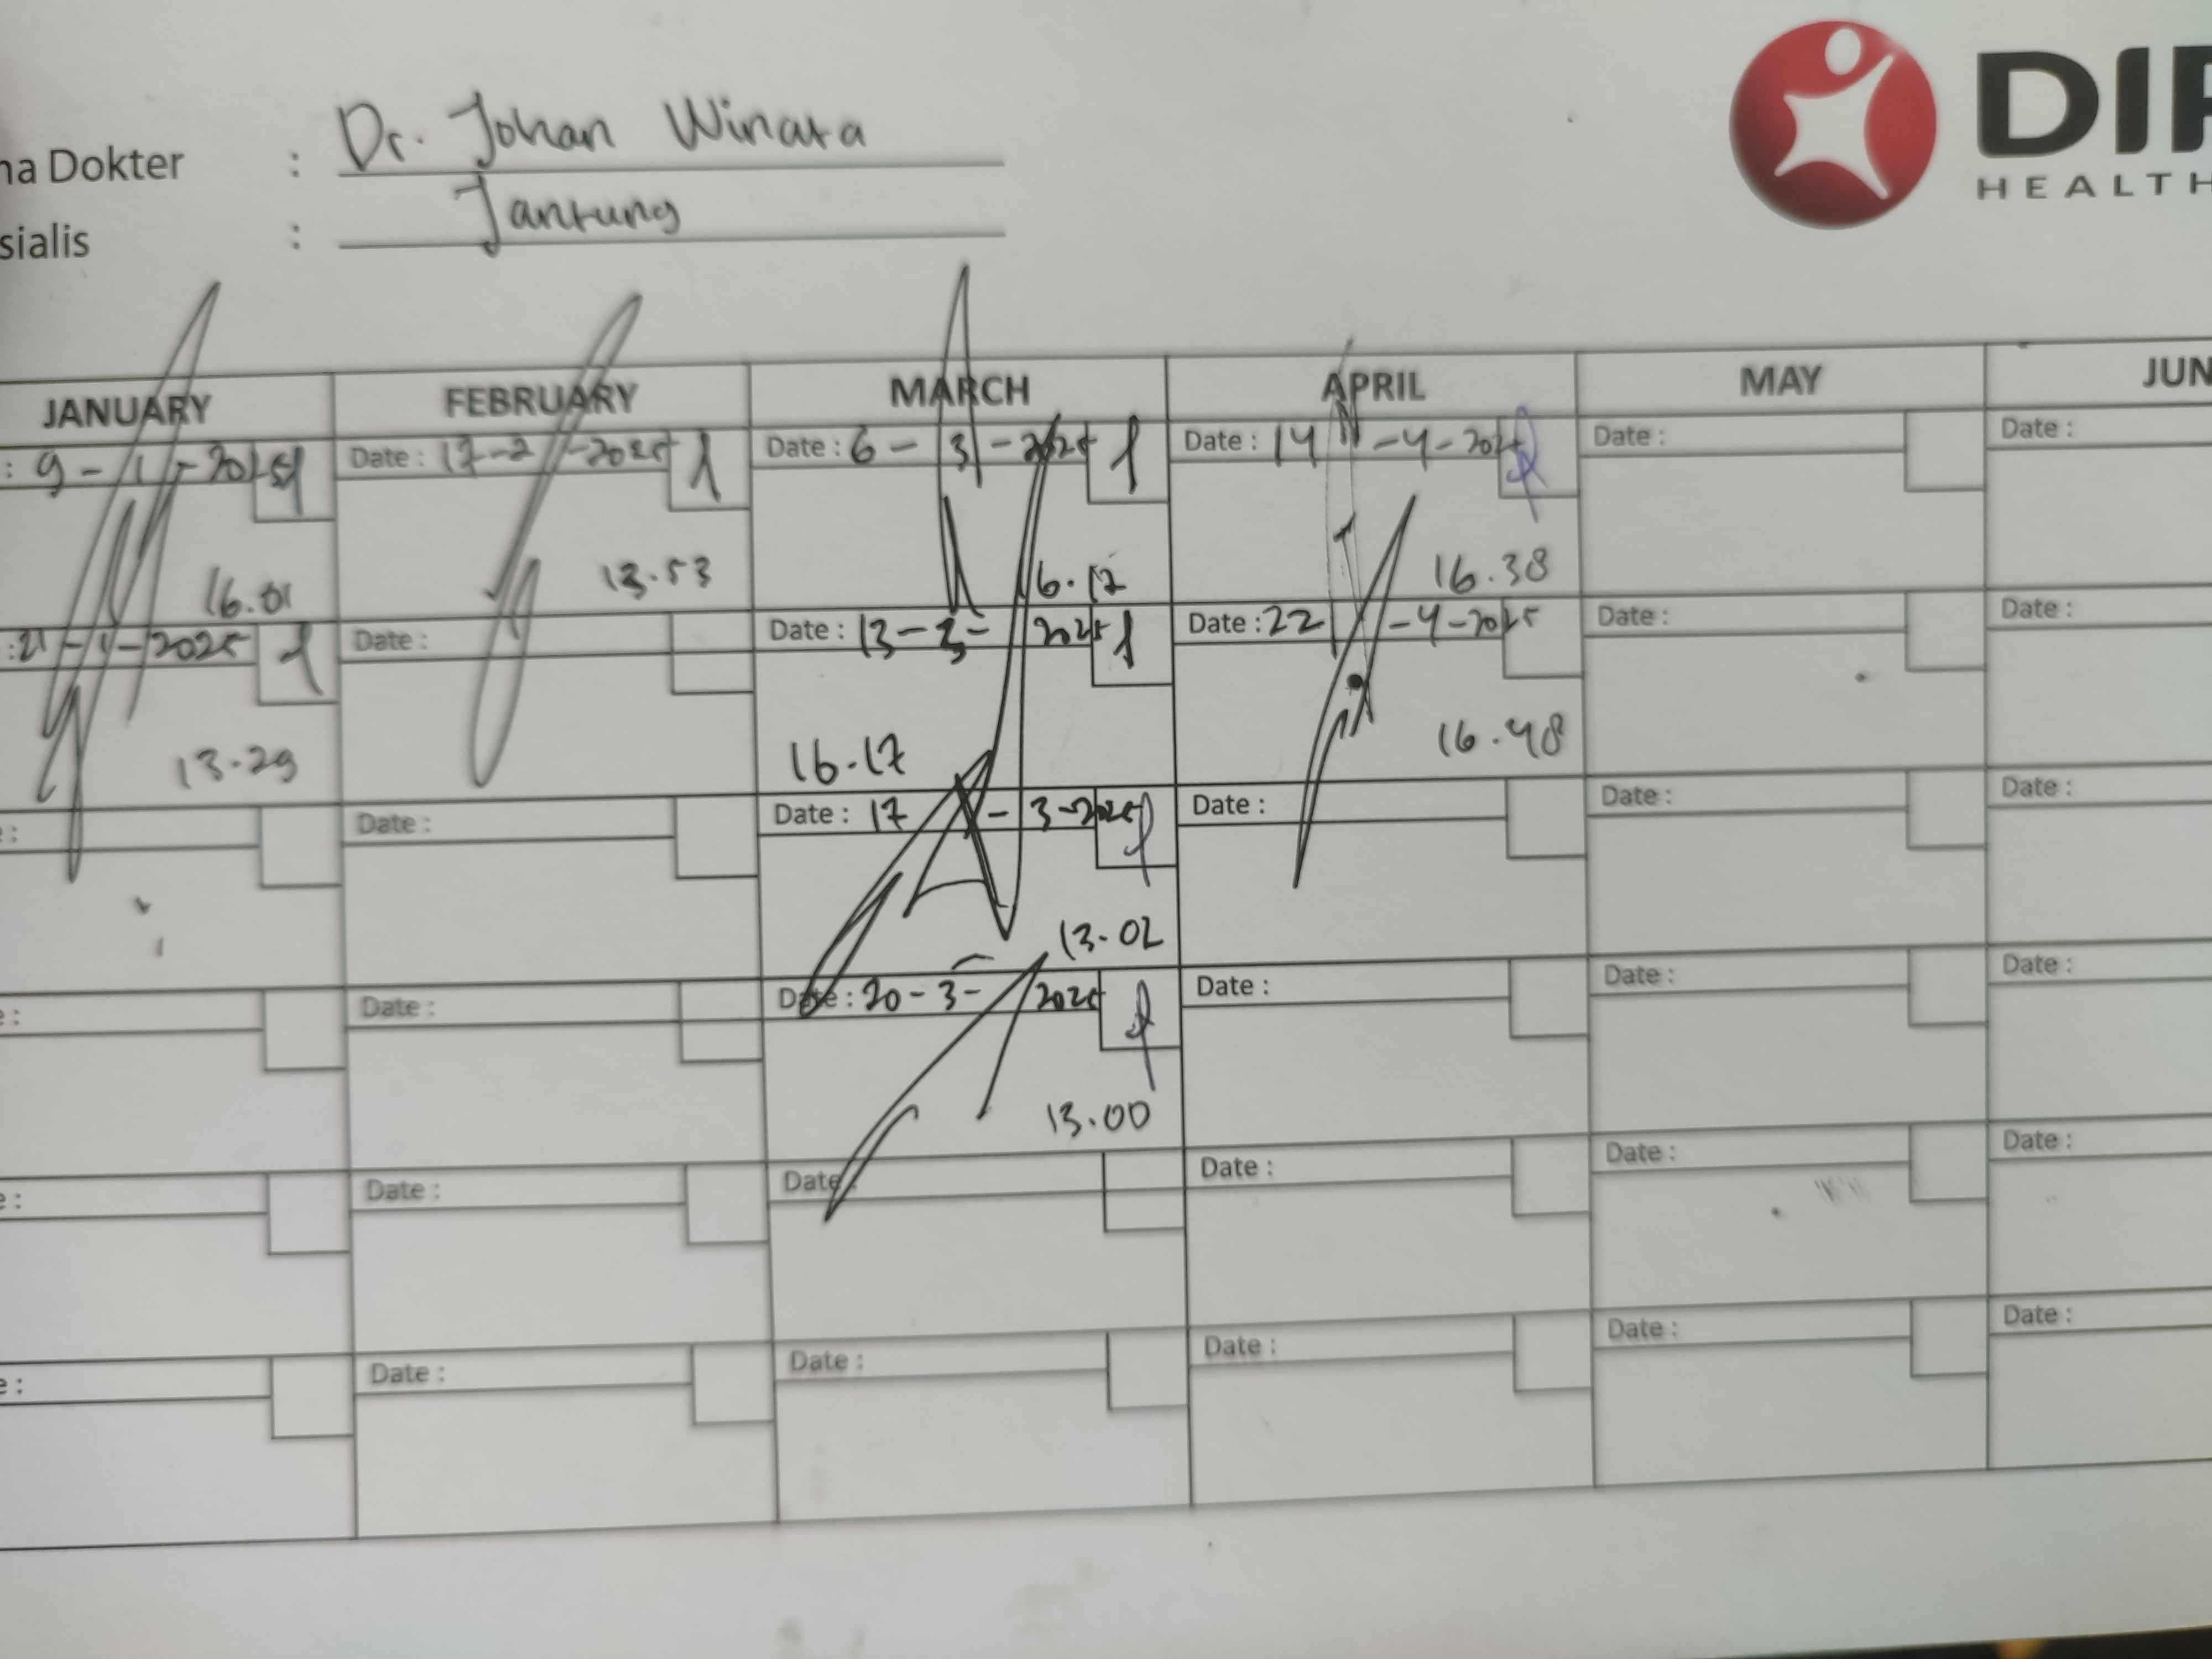 Dr. Johan Winata
DIF
na Dokter :
HEALTH
Jantung
sialis :
JANUARY FEBRUARY MARCH APRIL MAY JUN
: 9-1-2025 Date : 17-2-2025 Date : 6-3-2025 Date : 14-4-2025 Date : Date :
16.01 13.53 16.17 16.38
: 21-1-2025 Date : Date : 13-3-2025 Date : 22-4-2025 Date : Date :
13.29 16.17 16.48
e : Date : Date : 17-3-2025 Date : Date : Date :
13.02
e : Date : Date : 20-3-2025 Date : Date : Date :
13.00
e : Date : Date : Date : Date : Date :
e : Date : Date : Date : Date : Date :